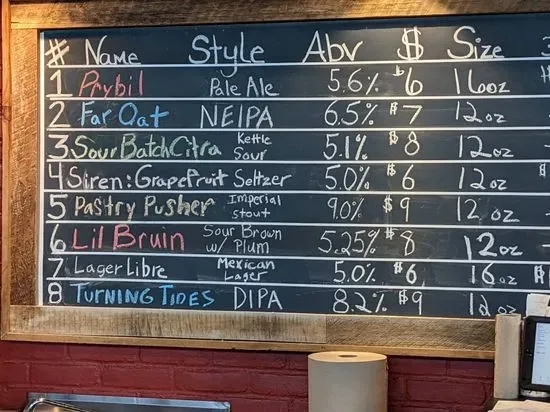 # Name Style Abv $ Size
1 Prybil Pale Ale 5.6% $6 16oz
2 Far Oat NEIPA 6.5% $7 12oz
3 Sour Batch Citra Kettle Sour 5.1% $8 12oz
4 Siren: Grapefruit Seltzer 5.0% $6 12oz
5 Pastry Pusher Imperial stout 9.0% $9 12oz
6 Lil Bruin Sour Brown w/ Plum 5.25% $8 12oz
7 Lager Libre Mexican Lager 5.0% $6 16oz
8 Turning Tides DIPA 8.2% $9 12oz